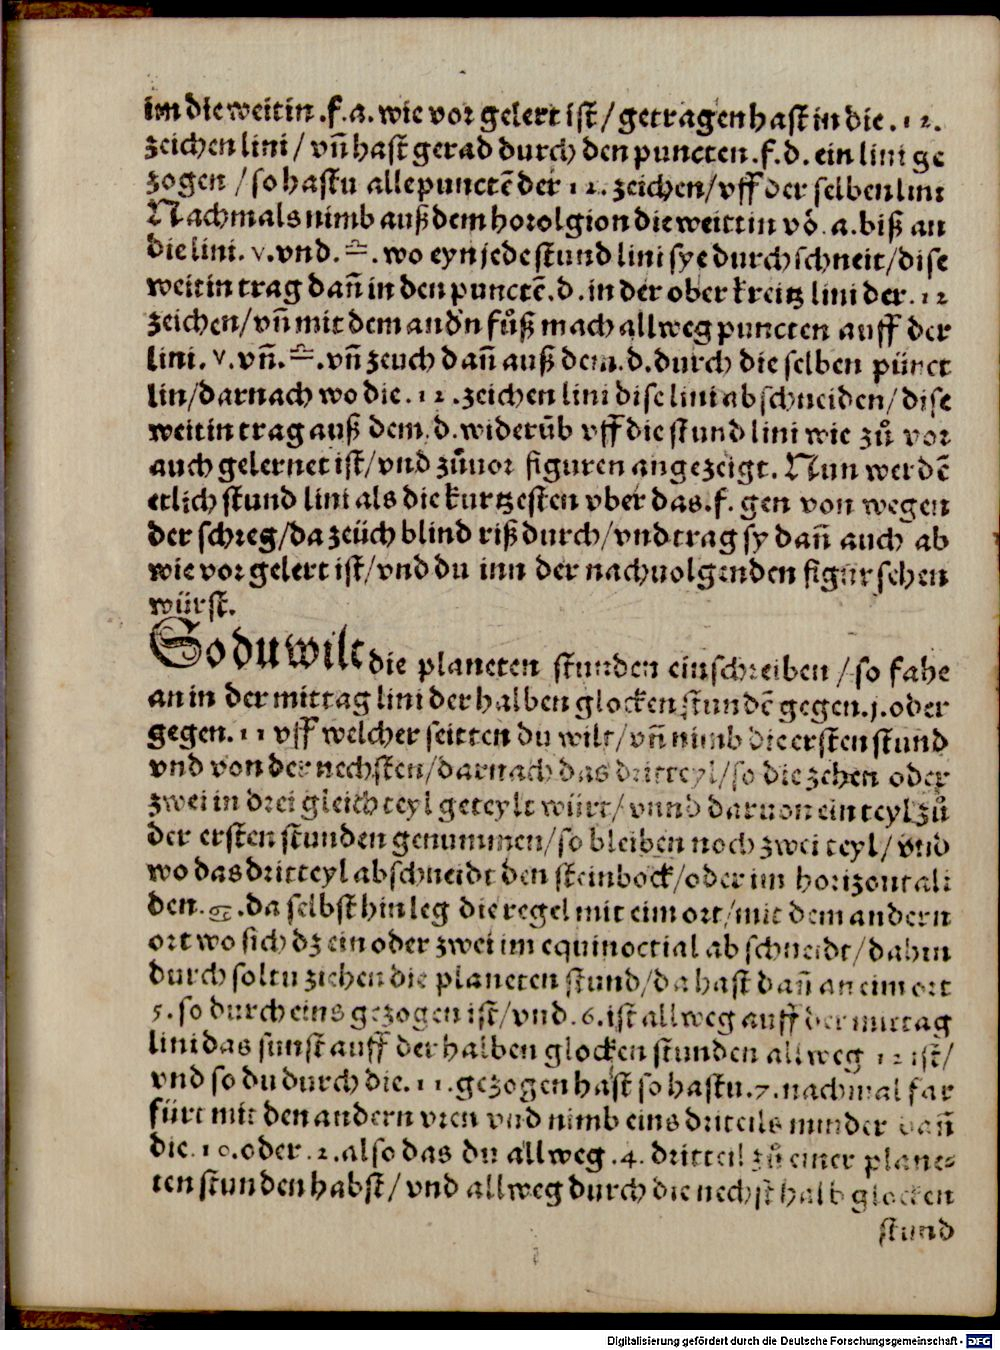 im die weitin .f.a. wie vor gelert ist / getragen hast in die .12.
zeichen lini / vñ hast gerad durch den puncten .f.d. ein lini ge
zogen / so hastu alle punctē der 12. zeichen / vff der selben lini
Nachmals nimb auß dem horolgion die weittin vō .a. biß an
die lini. ♈. vnd. ♎. wo eyn jede stund lini sye durch schneit / dise
weitin trag dañ in den punctē .d. in der ober kreitz lini der .12
zeichen / vñ mit dem andn̄ fuͦß mach allweg puncten auff der
lini. ♈. vñ. ♎. vñ zeuch dañ auß dem .d. durch die selben pünct
lin / darnach wo die .12. zeichen lini dise lini abschneiden / dise
weitin trag auß dem .d. widerūb vff die stund lini wie zuͦ vor
auch gelernet ist / vnd zuͦuor figuren angezeigt. Nun werdē
etlich stund lini als die kurtzesten vber das .f. gen von wegen
der schreg / da zeüch blind riß durch / vnd trag sy dañ auch ab
wie vor gelert ist / vnd du inn der nachuolgenden figur sehen
würst.
So du wilt die planeten stunden einschreiben / so fahe
an in der mittag lini der halben glocken stundē gegen .j. oder
gegen .11 vff welcher seitten du wilt / vñ nimb die ersten stund
vnd von der nechsten / darnach das dritteyl / so die zehen oder
zwei in drei gleich teyl geteylt würt / vnnd daruon ein teyl zuͦ
der ersten stunden genummen / so bleiben noch zwei teyl / vnd
wo das dritteyl abschneidt den steinbock / oder im horizontali
den. ♋. da selbst hin leg die regel mit eim ort / mit dem andern
ort wo sich dz ein oder zwei im equinoctial abschneidt / dahin
durch soltu ziehen die planeten stund / da hast dañ an eim ort
5. so durch eins gezogen ist / vnd .6. ist allweg auff der mittag
lini das sunst auff der halben glocken stunden allweg 12 ist /
vnd so du durch die .11. gezogen hast so hastu .7. nachmal far
fürt mit den andern vren vnd nimb eins driteils minder dañ
die .10. oder .2. also das du allweg .4. dritteil zuͦ einer plane⸗
ten stunden habst / vnd allweg durch die nechst halb glocken
stund
Digitalisierung gefördert durch die Deutsche Forschungsgemeinschaft - DFG